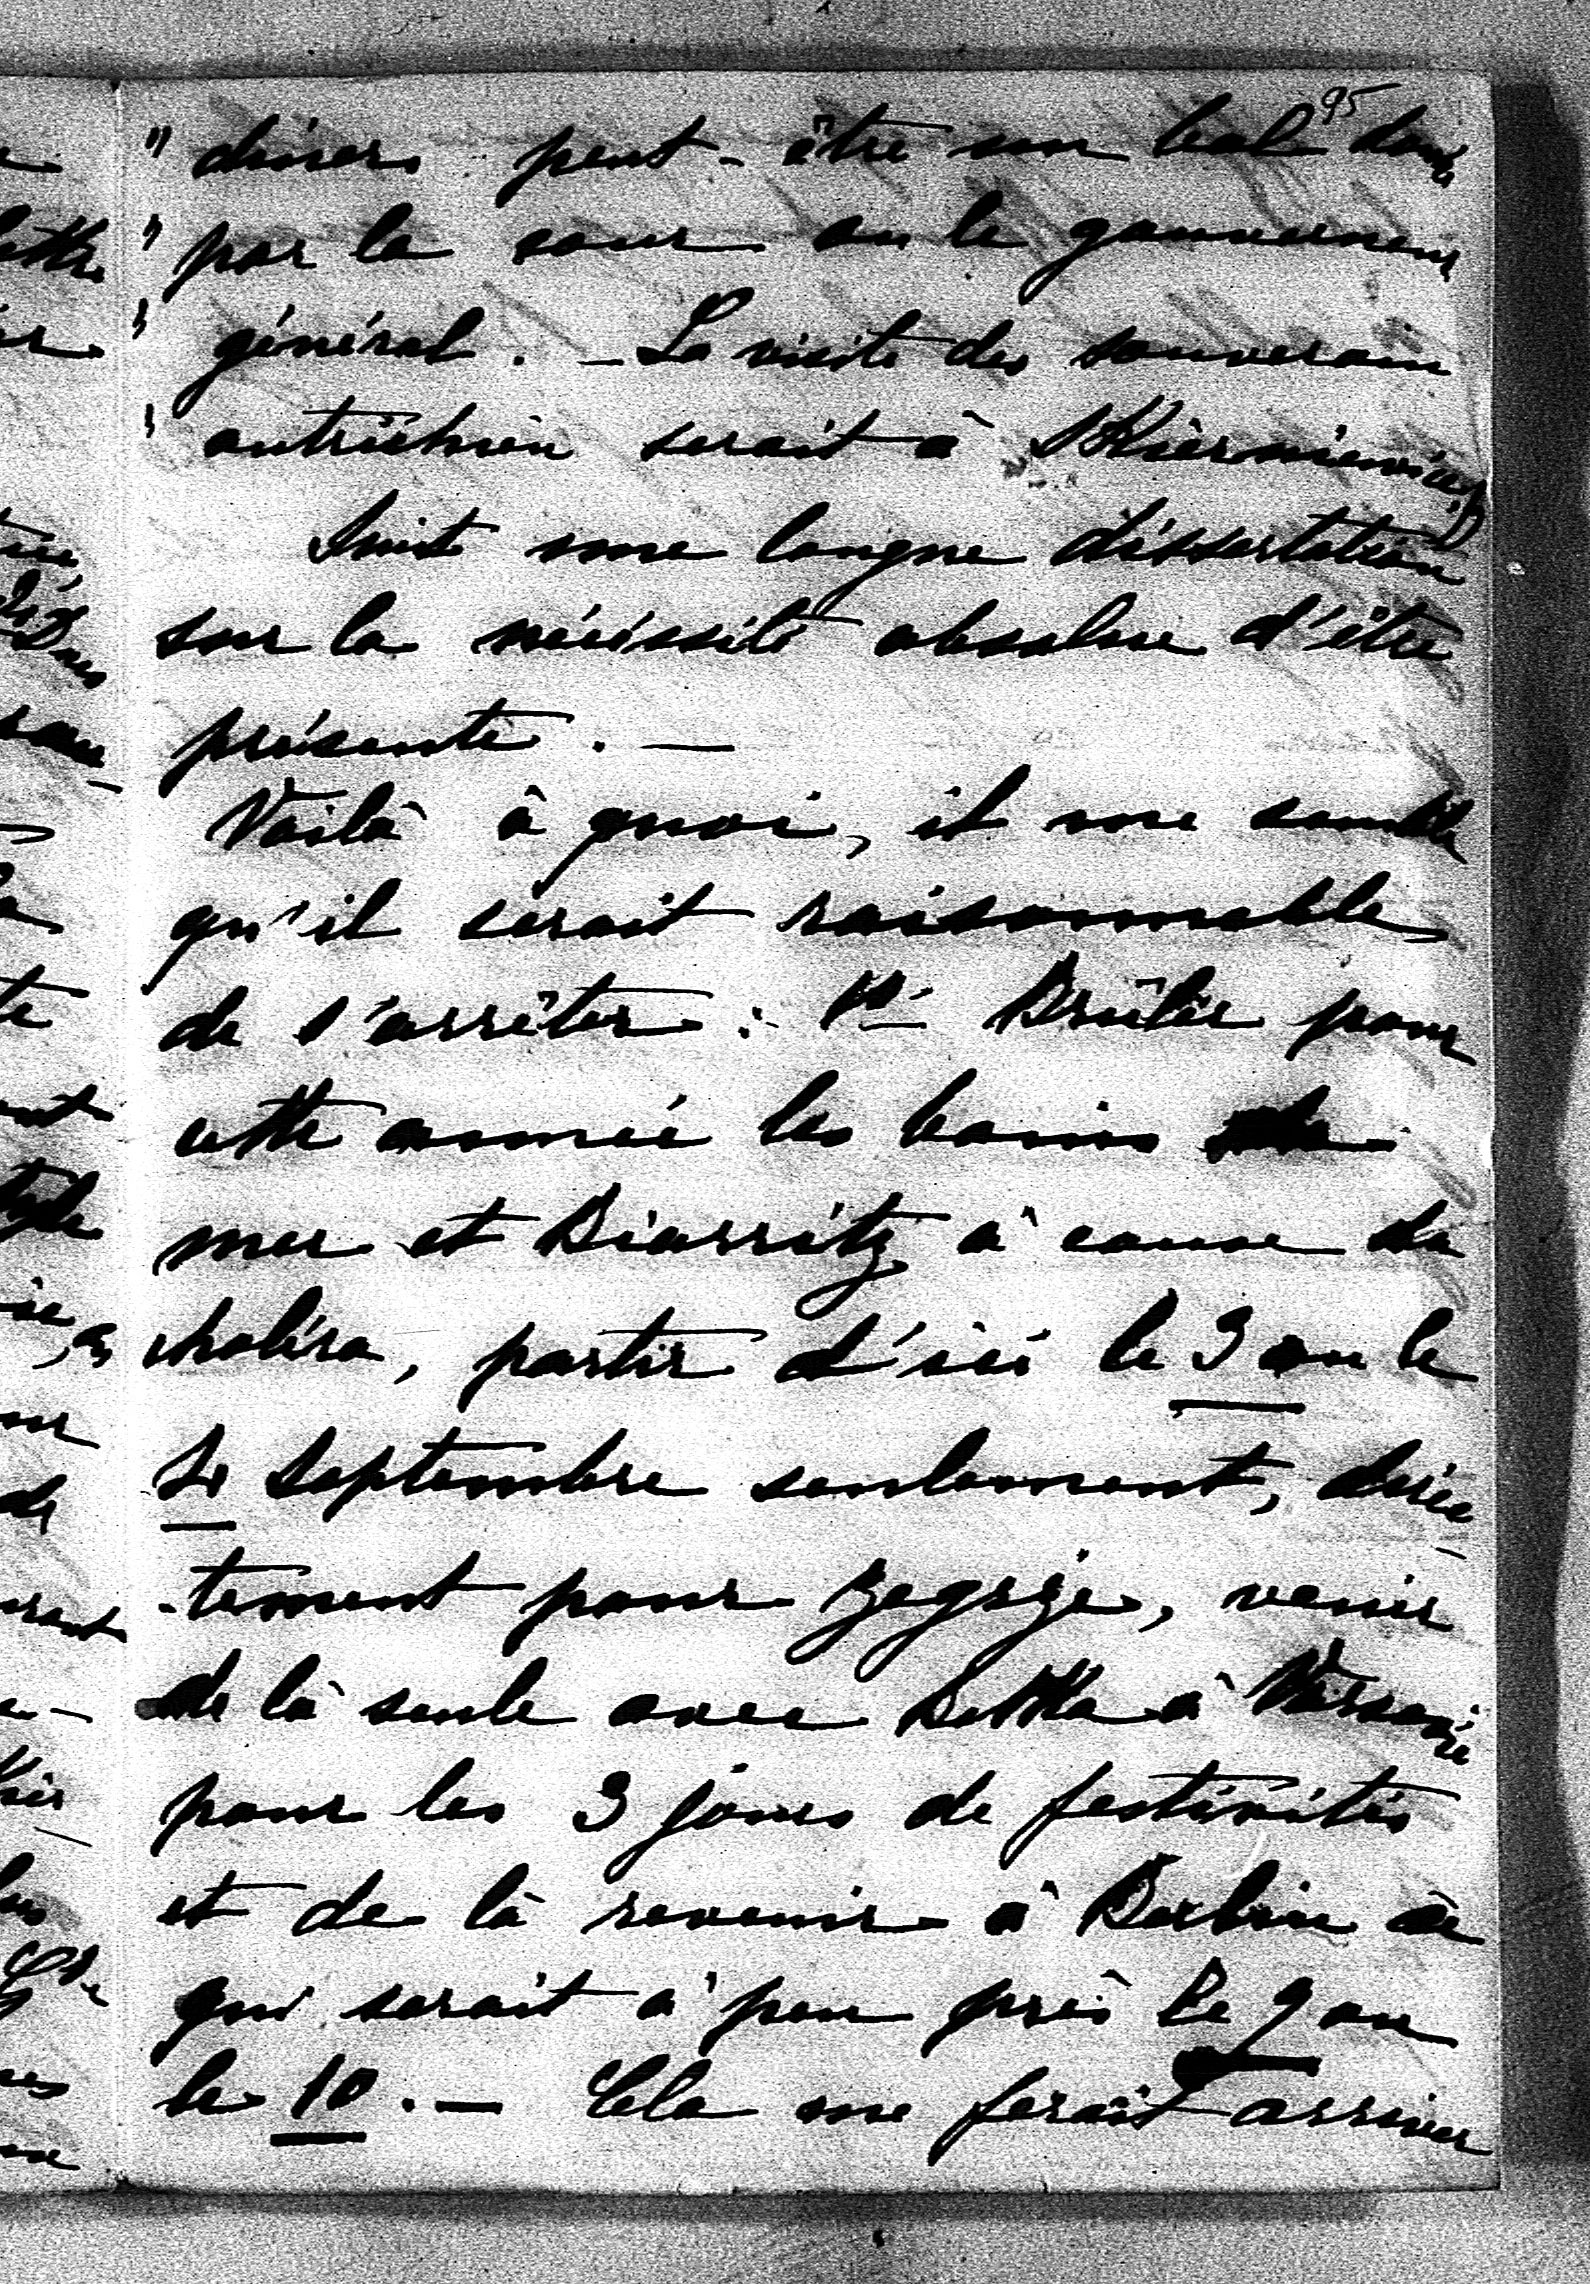 95
" diners peut-être un bal donné
" par la cour ou le gouverneur
" général. – La visite des souverain
" autrichien serait à Skierniewice"
Suit une longue dissertation
sur la nécéssité absolue d'être
présente. —
Voilà à quoi, il me semble
qu'il serait raisonnable
de s'arrêter : Brûler pour
cette année les bains de
mer et Biarritz à cause du
choléra, partir d'ici le 3 ou le
4 Septembre seulement, direc-
-tement pour Zegrze, venir
de là seule avec Betka à Varsovie
pour les 3 jours de festivités
et de là revenir à Berlin ce
qui serait à peu près le 9 ou
le 10. — Cela me ferait arriver